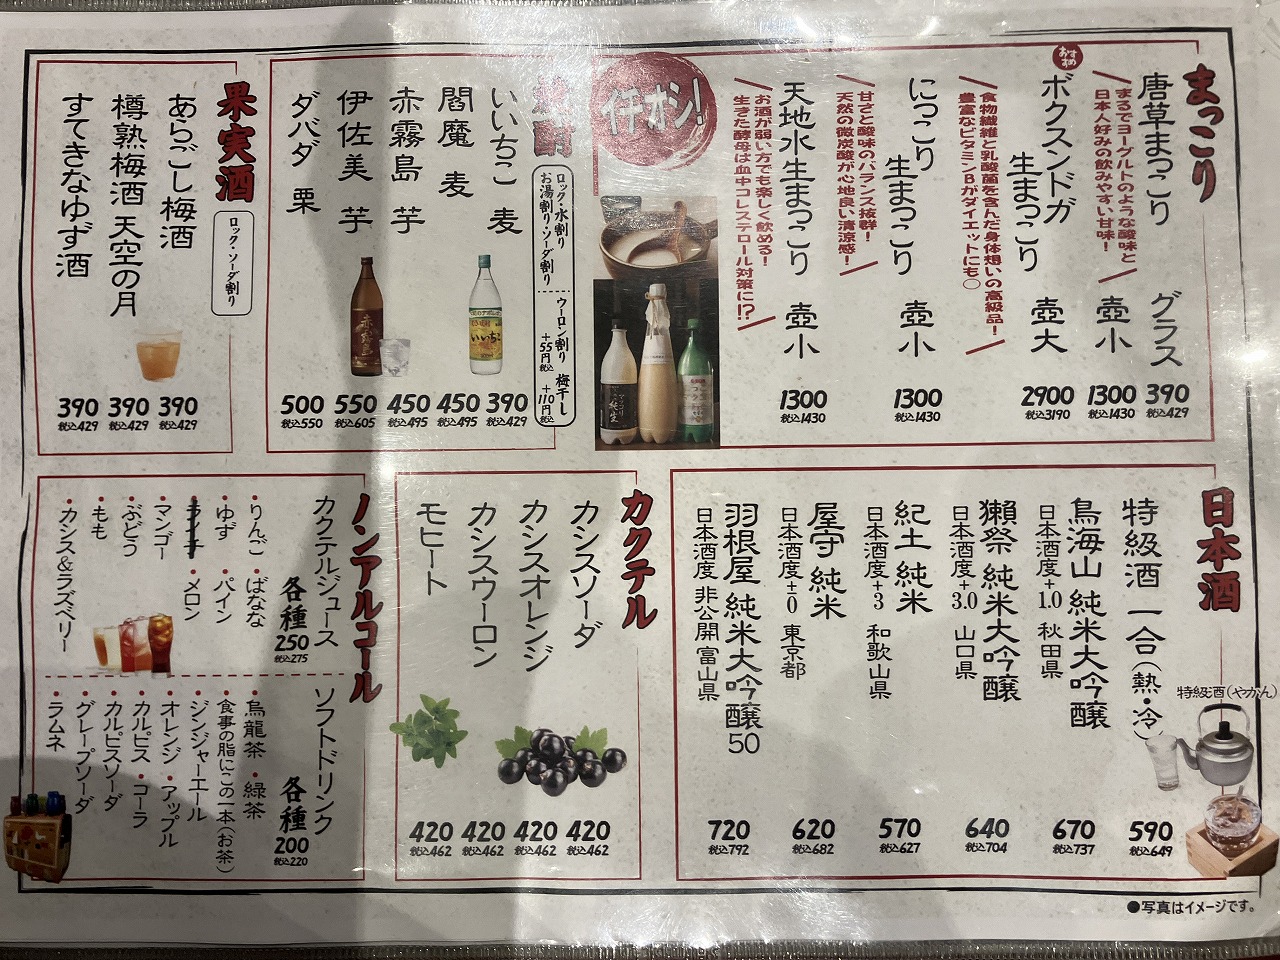 まっこり
唐草まっこり グラス 390 税込429
まるでヨーグルトのような酸味と
日本人好みの飲みやすい甘味!
壺小 1300 税込1430
おすすめ
ボクスンドガ
生まっこり 壺大 2900 税込3190
食物繊維と乳酸菌を含んだ身体想いの高級品!
豊富なビタミンBがダイエットにも○
にっこり
生まっこり 壺小 1300 税込1430
甘さと酸味のバランス抜群!
天然の微炭酸が心地良い清涼感!
天地水生まっこり 壺小 1300 税込1430
お酒が弱い方でも楽しく飲める!
生きた酵母は血中コレステロール対策に!?
イチオシ!
ロック・水割り
お湯割り・ソーダ割り
ウーロン割り +55円税込
梅干し +110円税込
いいちこ 麦 390 税込429
閻魔 麦 450 税込495
赤霧島 芋 450 税込495
伊佐美 芋 550 税込605
ダバダ 栗 500 税込550
いいちこ
赤霧島
果実酒
ロック・ソーダ割り
あらごし梅酒 390 税込429
樽熟梅酒 天空の月 390 税込429
すてきなゆず酒 390 税込429
日本酒
特級酒 一合(熱・冷) 590 税込649
特級酒(やかん)
鳥海山 純米大吟醸 670 税込737
日本酒度+1.0 秋田県
獺祭 純米大吟醸 640 税込704
日本酒度+3.0 山口県
紀土 純米 570 税込627
日本酒度+3 和歌山県
屋守 純米 620 税込682
日本酒度±0 東京都
羽根屋 純米大吟醸50 720 税込792
日本酒度 非公開 富山県
カクテル
カシスソーダ 420 税込462
カシスオレンジ 420 税込462
カシスウーロン 420 税込462
モヒート 420 税込462
ノンアルコール
カクテルジュース
各種 250 税込275
・りんご ・ばなな
・ゆず ・パイン
・ライチ ・メロン
・マンゴー
・ぶどう
・もも
・カシス&ラズベリー
ソフトドリンク
各種 200 税込220
・烏龍茶 ・緑茶
・食事の脂にこの一本(お茶)
・ジンジャーエール
・オレンジ ・アップル
・カルピス ・コーラ
・カルピスソーダ
・グレープソーダ
・ラムネ
●写真はイメージです。